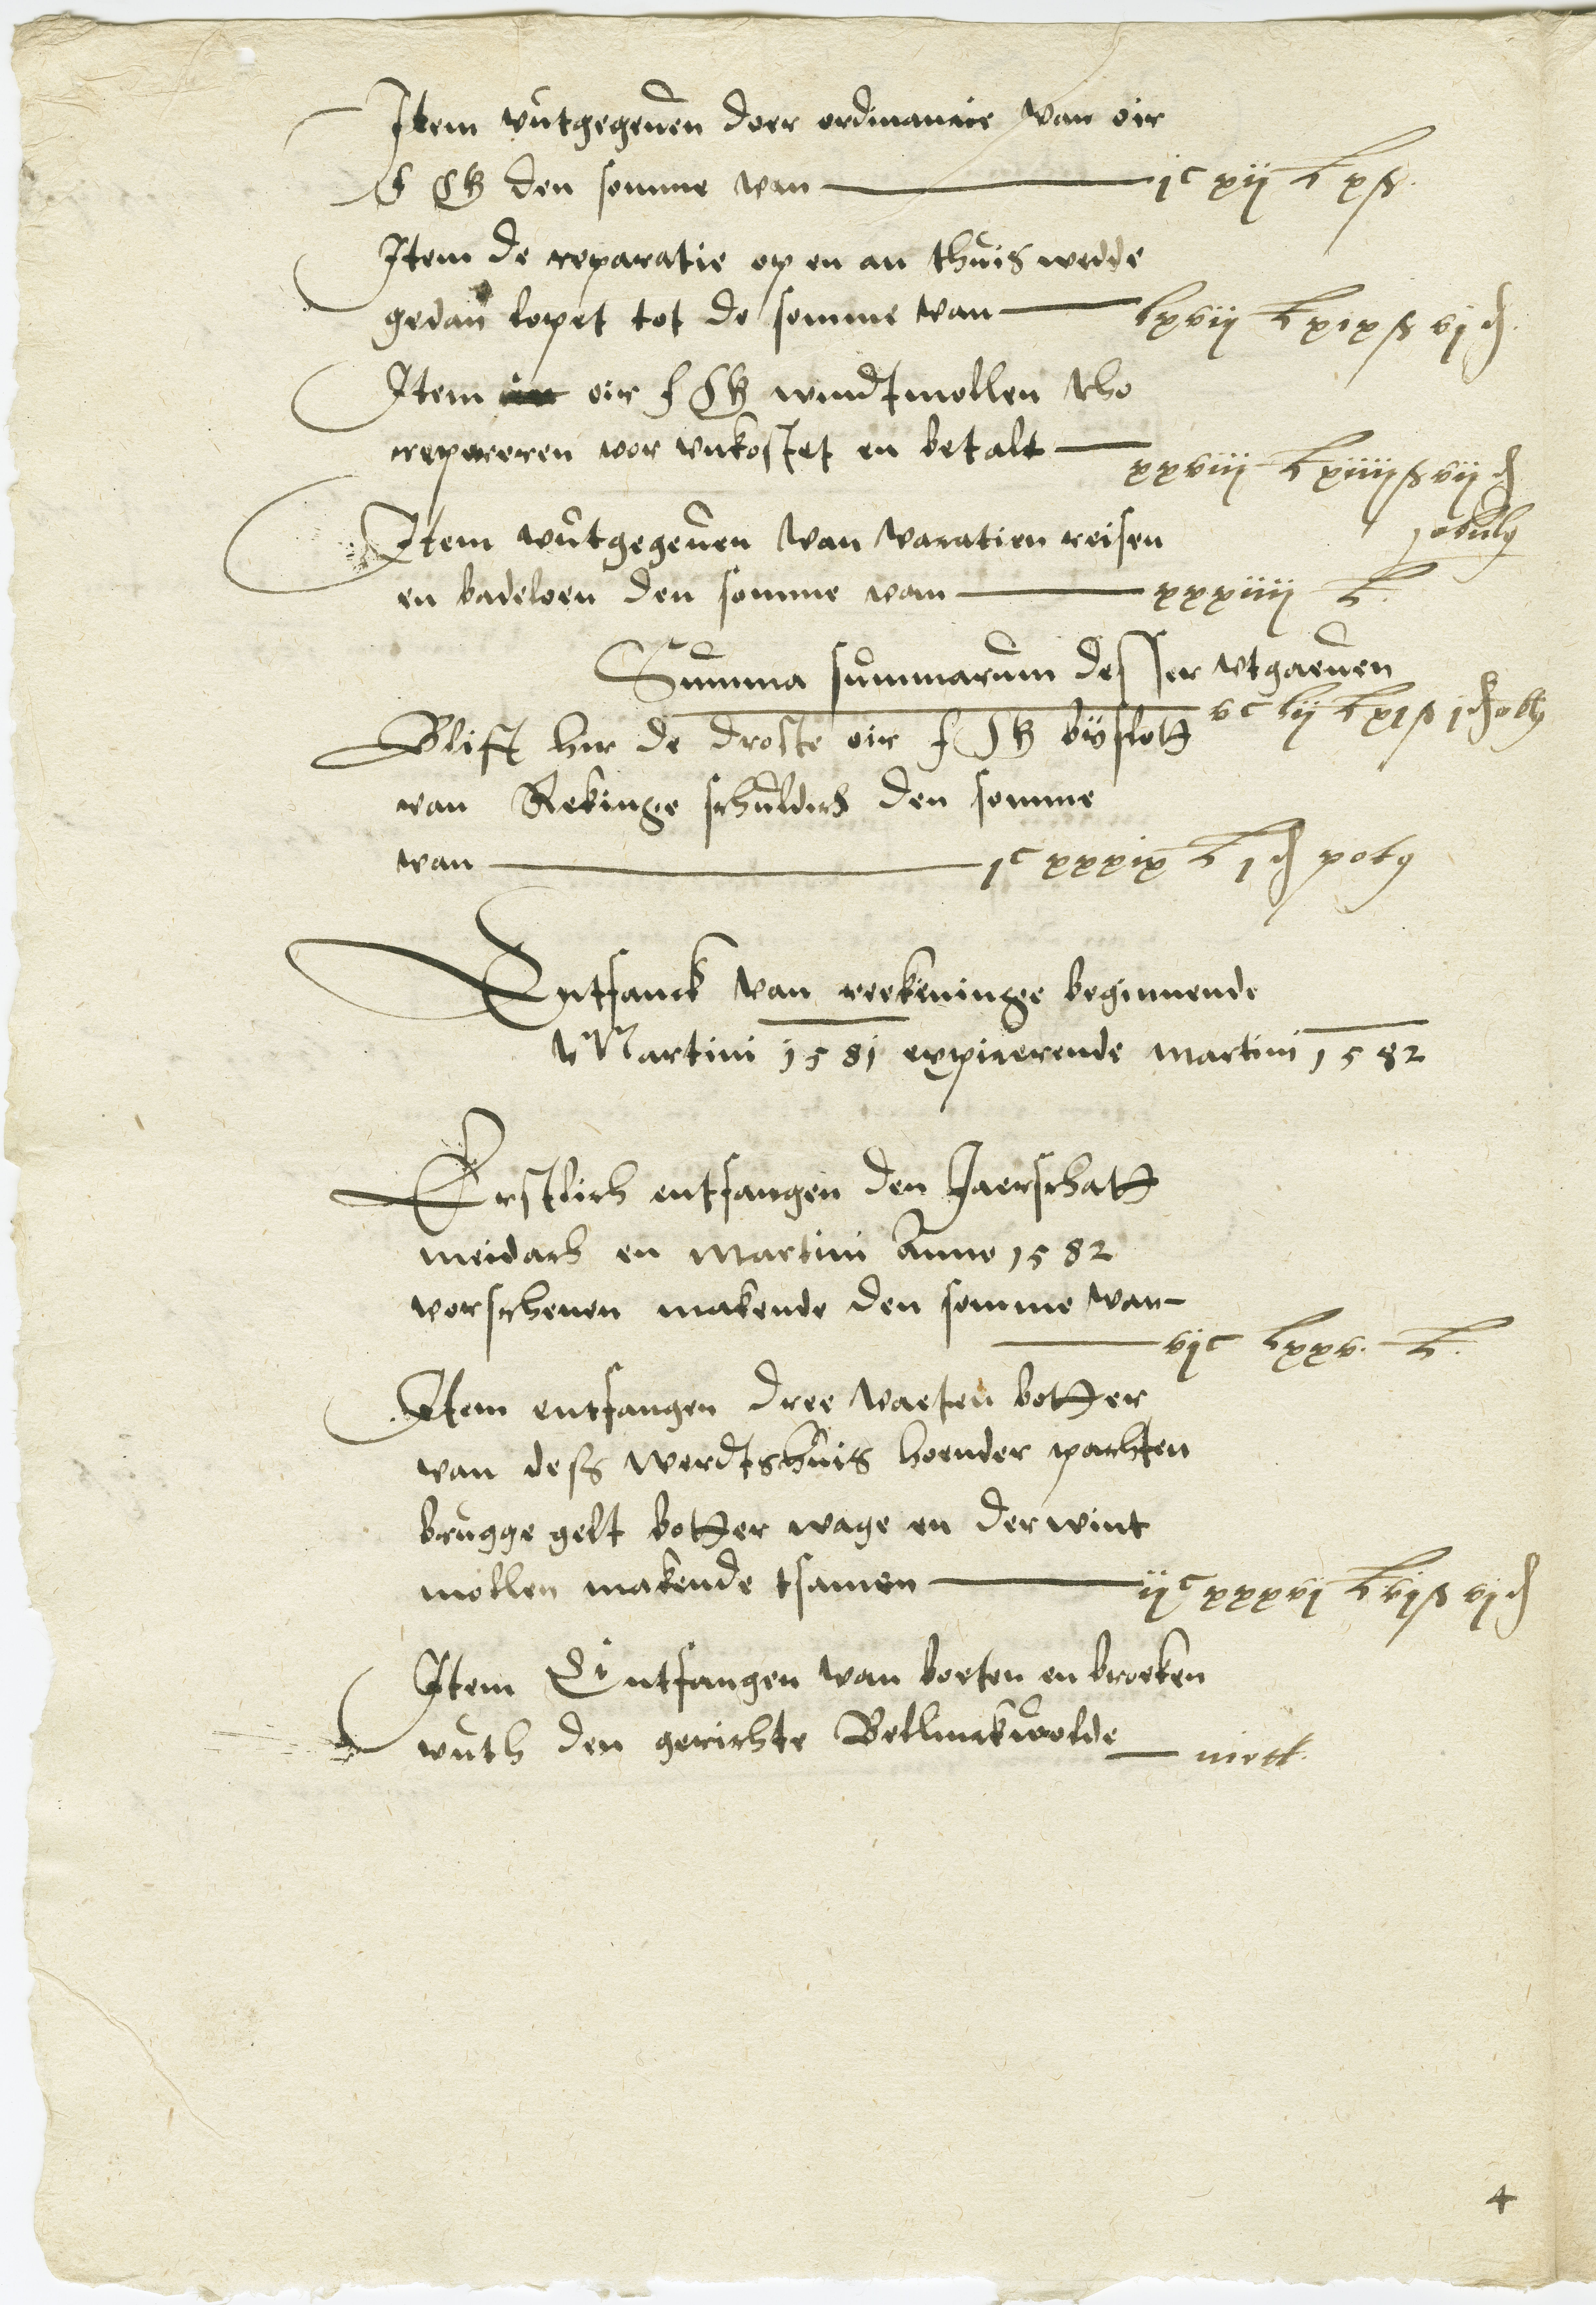 Item vutgegeven doer ordinancie van oir
f G den somme van — jc xij L x ß
Item de reparatie op en an thuis wedde
gedan lopet tot de somme van — lxvij L xix ß vj d
Item oir f G windtmollen tho
repareren vor unkostet en betalt — xxviij L xiiij ß vij d
j obuly
Item vutgegeven van vacatien reisen
en badeloen den somme van — xxxiiij L
Summa summarum desser utgaeven
vc lij L xj ß j d oly
Blift hir de droste oir f G by sloth
van Rekinge schuldich den somme
van — jc xxxix L j d x oly
Entfanck van reekeninge beginnende
Martini 1581 expirerende martini 1582
Erstlich entfangen den Jaerschath
meidach en martini Anno 1582
vorschenen makende den somme van
— vijc lxxv L
Item entfangen dree vaeten botter
van dess werdtshuis hoender pachten
brugge gelt botter wage en der wint
mollen makende tsamen — ijc xxxvj L vj ß vj d
Item Entfangen van boeten en broeken
vuth den gerichte Bellinckwolde — niett
4